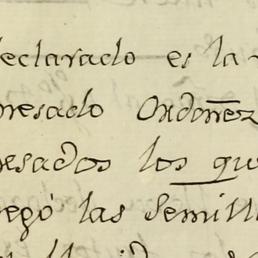 declarado es la
presado Ordoñez
pesados los qu
egó las Semill